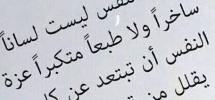 نفس ليست لساناً
ساخراً ولا طبعاً متكبراً عزة
النفس أن تبتعد عن كل
يقلل من